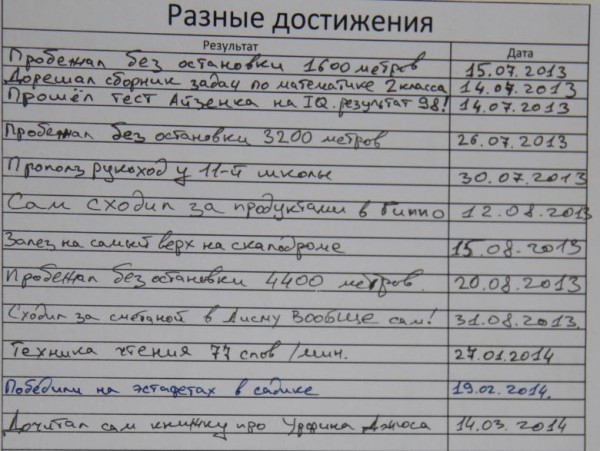 Разные достижения
Результат Дата
Пробежал без остановки 1600 метров 15.07.2013
Дорешал сборник задач по математике 2 класса 14.07.2013
Прошёл тест Айзенка на IQ. результат 98! 14.07.2013
Пробежал без остановки 3200 метров 26.07.2013
Прополз рукоход у 11-й школы 30.07.2013
Сам сходил за продуктами в Гиппо 12.08.2013
Залез на самый верх на скалодроме 15.08.2013
Пробежал без остановки 4400 метров. 20.08.2013
Сходил за сметаной в Лисму ВООБЩЕ сам! 31.08.2013.
Техника чтения 77 слов/мин. 27.01.2014
Победили на эстафетах в садике 19.02.2014.
Дочитал сам книжку про Урфина Джюса 14.03.2014